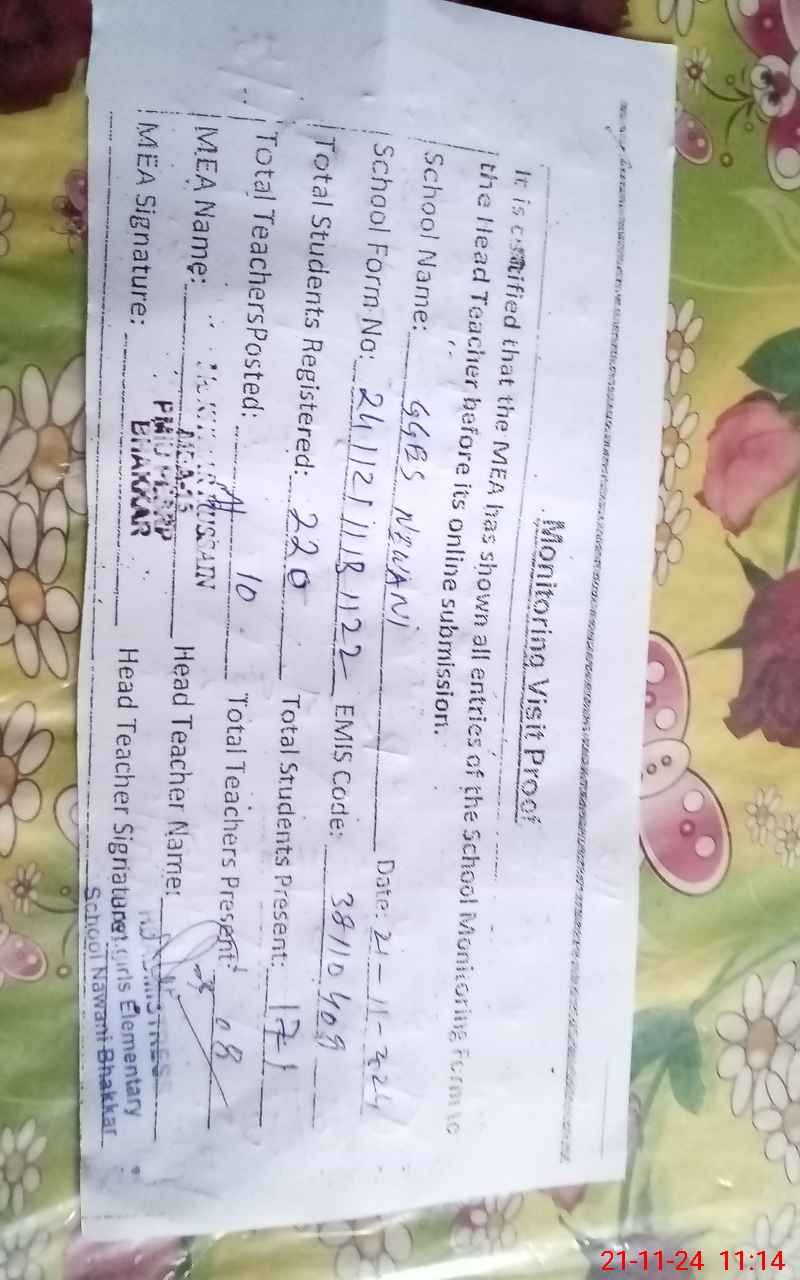 Monitoring Visit Proof
It is certified that the MEA has shown all entries of the School Monitoring Form to
the Head Teacher before its online submission.
School Name: GGES NEWANI Date: 21-11-2024
School Form No: 24112111181122 EMIS Code: 38110409
Total Students Registered: 220 Total Students Present: 171
Total TeachersPosted: 10 Total Teachers Present: 08
MEA Name: HUSSAIN Head Teacher Name:
MEA-15
MEA Signature: BHAKKAR Head Teacher Signature:
Girls Elementary
School Nawani Bhakkar
21-11-24 11:14